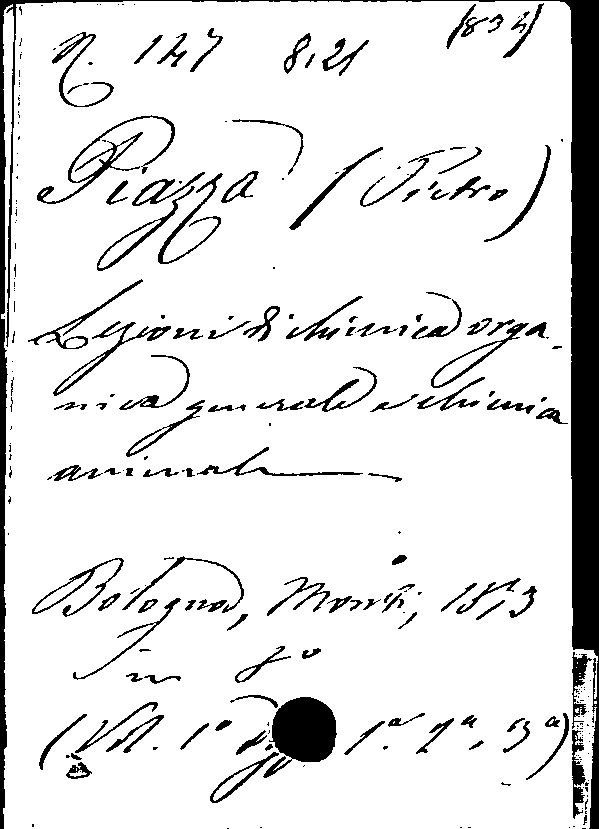 N. 147 8,21 (834)
Piazza (Pietro)
Lezioni di chimica orga-
nica generale e chimica
animale
Bologna, Monti, 1873
In 8°
(Vol. 1° 1ª. 2ª, 3ª)